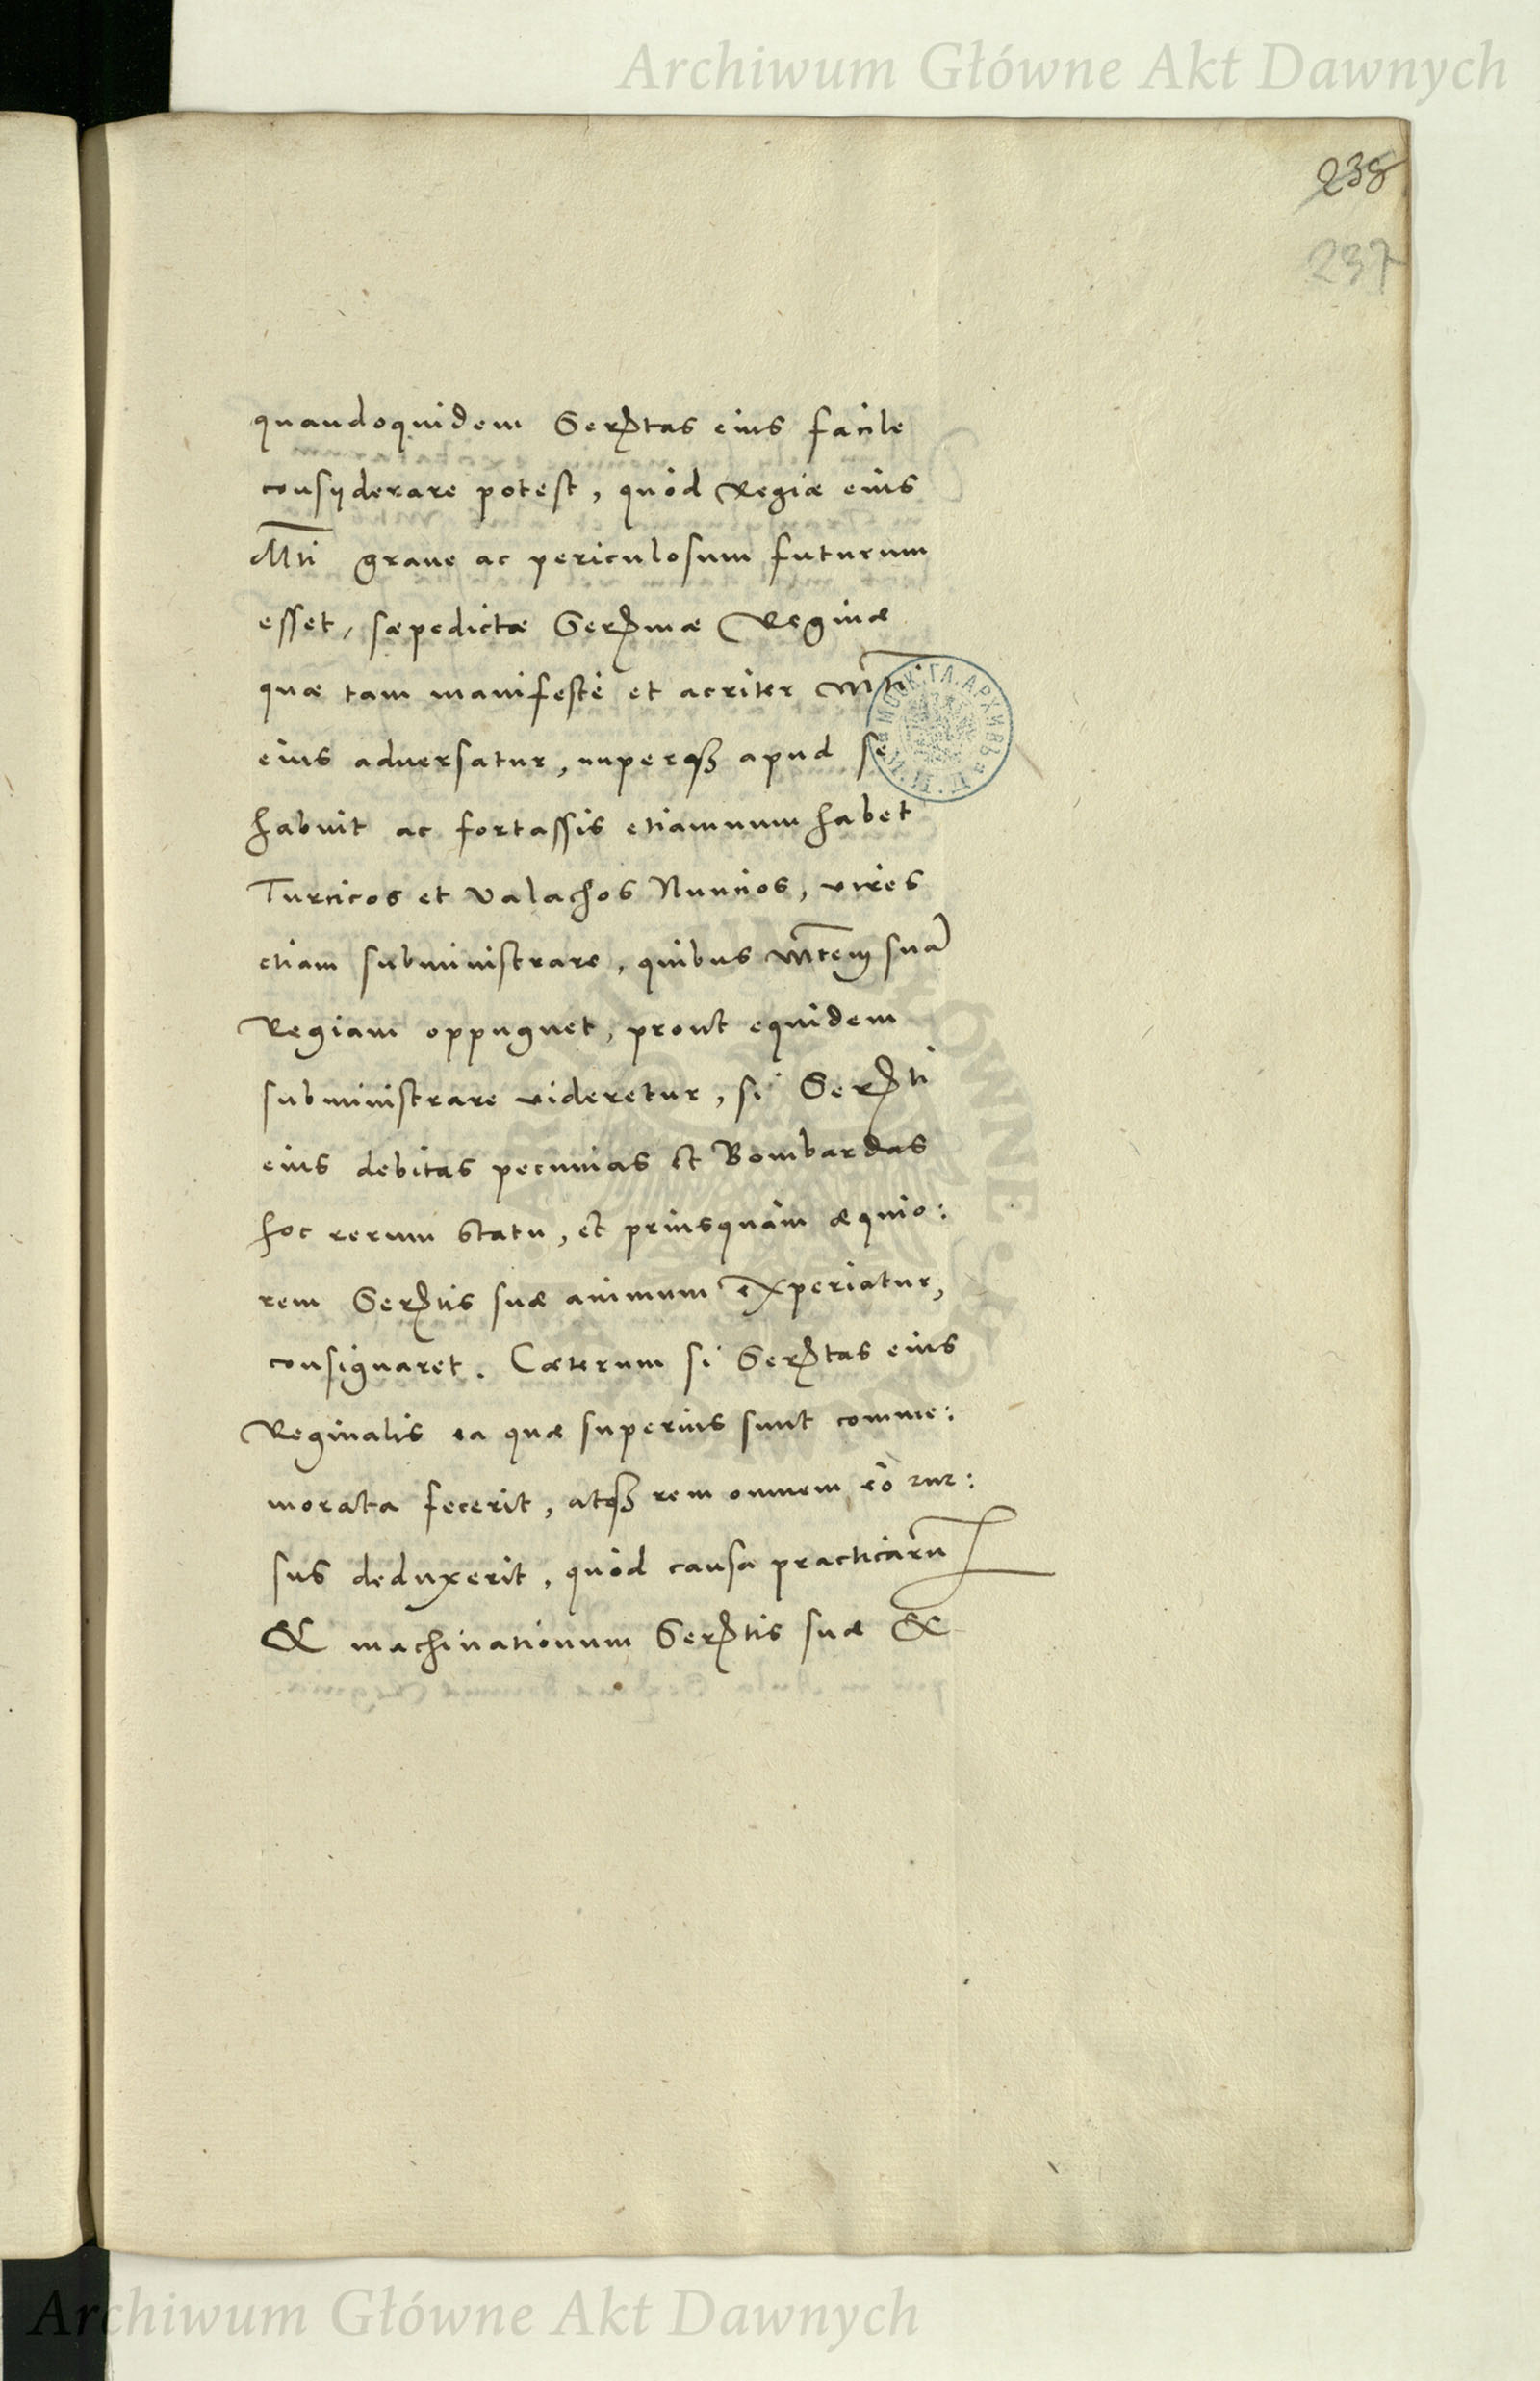 Archiwum Główne Akt Dawnych
238
237
quandoquidem Serᵗtas eius facile
consyderare potest, quòd Regiæ eius
Mti graue ac periculosum futurum
esset, sæpedictæ Serᵐmæ Reginæ
quæ tam manifestè et acriter Mti
eius aduersatur, nuperqʒ apud se
habuit ac fortassis etiamnum habet
Turcicos et Valachos Nuncios, vires
etiam subministrare, quibus Mtem suā
Regiam oppugnet, prout equidem
subministrare videretur, si Serᵗti
eius debitas pecunias et Bombardas
hoc rerum statu, et priusquàm æquio:
rem Serᵗtis suæ animum experiatur,
consignaret. Cæterum si Serᵗtas eius
Reginalis ea quæ superius sunt comme:
morata fecerit, atqʒ rem omnem eò rur:
sus deduxerit, quòd causa practicarū
& machinationum Serᵗtis suæ &
МОСК. ГЛ. АРХИВЪ
Archiwum Główne Akt Dawnych